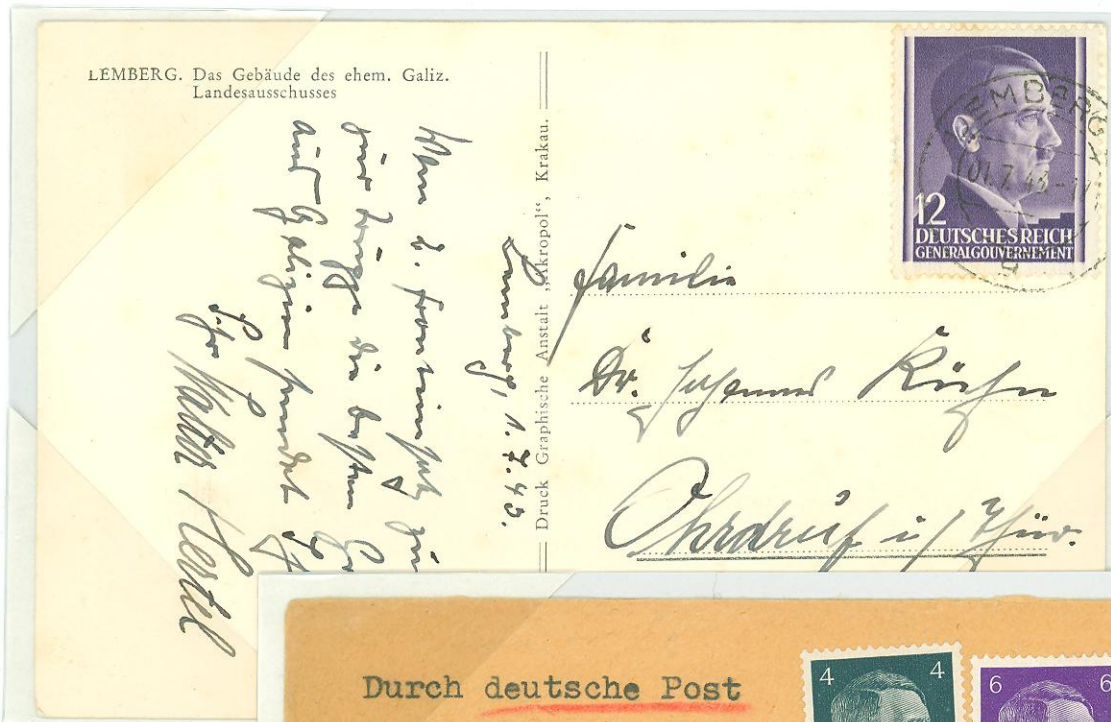 LEMBERG. Das Gebäude des ehem. Galiz.
Landesausschusses
Druck Graphische Anstalt „Akropol“, Krakau.
Lemberg, 1.7.43.
die besten
aus Galizien sendet
Ihr Walter Hertel
12
DEUTSCHES REICH
GENERALGOUVERNEMENT
LEMBERG
01.7.43
Familie
Dr. Johannes Kühn
Ohrdruf i/Thür.
Durch deutsche Post
4 4
6 6